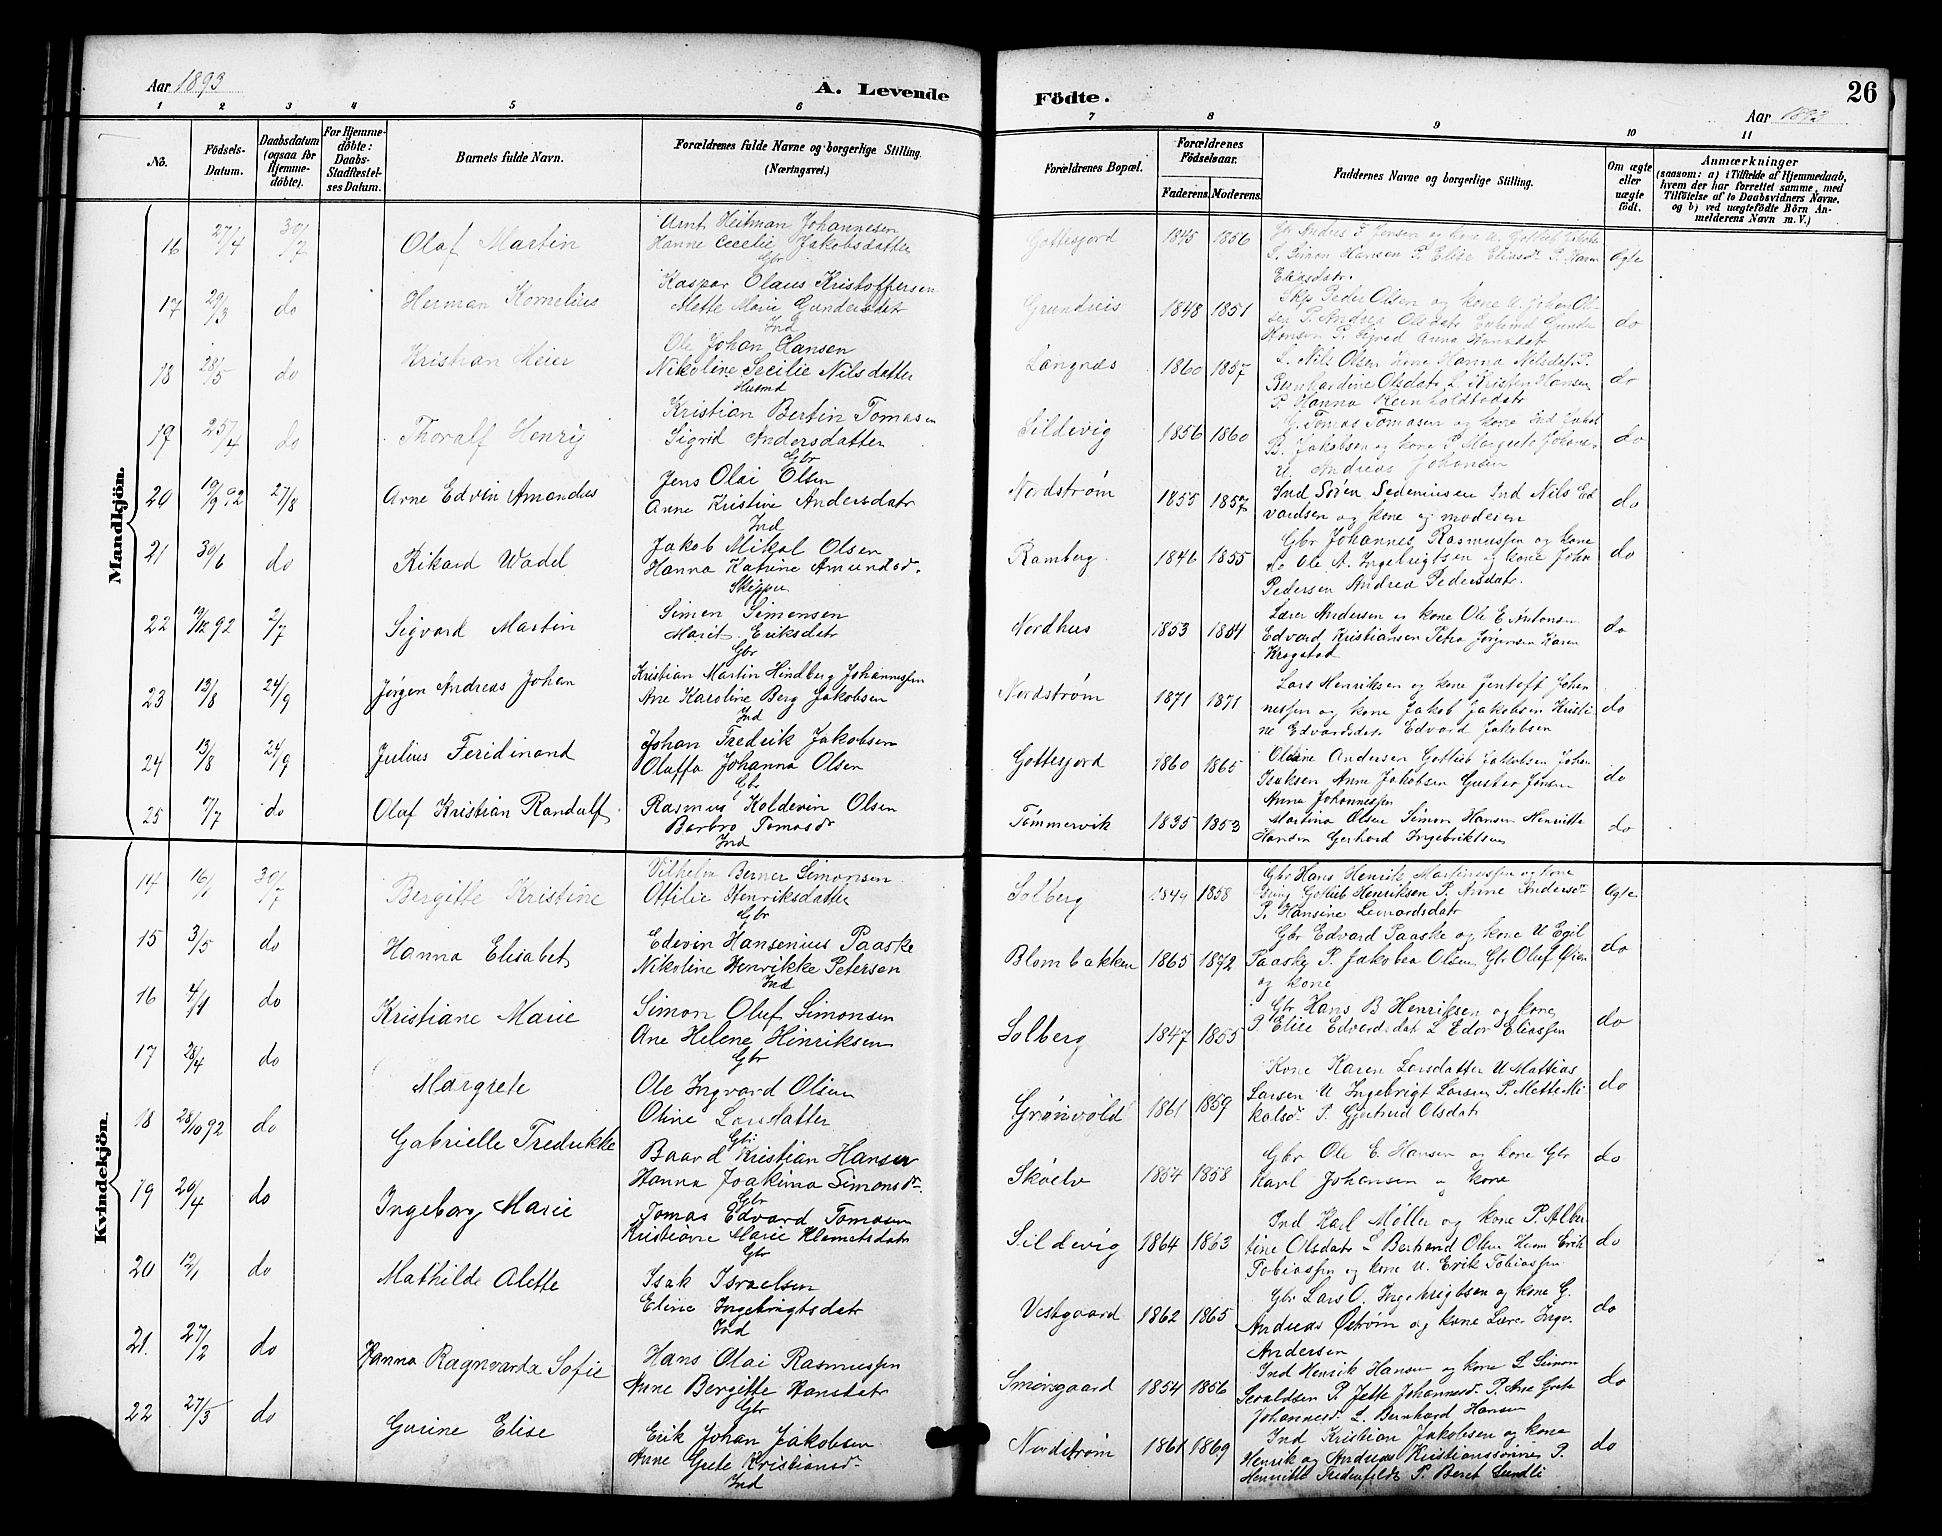 Aar 1893
A. Levende
Födte.
26
Aar 1893
1 2 3 4 5 6 7 8 9 10 11
No.
Födsels-Datum.
Daabsdatum (ogsaa for Hjemmedöbte).
For Hjemmedöbte: Daabs-Stadfæstelses Datum.
Barnets fulde Navn.
Forældrenes fulde Navne og borgerlige Stilling.
(Næringsvei.)
Forældrenes Bopæl.
Forældrenes Födselsaar.
Faderens. Moderens.
Faddernes Navne og borgerlige Stilling.
Om ægte eller uægte födt.
Anmærkninger
(saasom: a) i Tilfælde af Hjemmedaab, hvem der har forrettet samme, med Tilföielse af to Daabsvidners Navne, og b) ved uægtefödte Börn Anmelderens Navn m. V.)
Mandkjön.
16 27/4 30/7 Olaf Martin
Arnt Heitman Johannesen
Hanne Cecelie Jakobsdatter
Gbr
Gottesjord 1845 1856
Eliasdatr.
Ægte
17 29/3 do Herman Kornelius
Kaspar Olaus Kristoffersen
Mette Marie Gundersdat
Ind
Grundreis 1848 1851
Skp Peder Olsen og kone U. Johan Ol-
sen P. Andrea Olsdatr
Hanson P. Sigred Anna Hansdatr
do
18 28/5 do Kristian Meier
Ole Johan Hansen
Nikoline Secilie Nilsdatter
Husmd
Langnæs 1860 1857
L. Nils Olsen kone Hanna Nilsdat P.
Bernhardine Olsdatr L Kristen Hansen
P. Hanna Reinholdtsdatr
do
19 25/4 do Thoralf Henrij
Kristian Bertin Tomasen
Sigrid Andersdatter
Gbr
Sildevig 1856 1860
G. Tomas Tomasen og kone Ind Jakob
B. Jakobsen og kone P Margrete Johans
U. Andreas Johansen
do
20 19/9 92 27/8 Arne Edvin Amandus
Jens Olai Olsen
Anne Kristine Andersdatr
Ind
Nordstrøm 1855 1857
Ind Søren Sedeniusen Ind Nils Ed
vardsen og kone og moderen
do
21 30/6 do Rikard Wadel
Jakob Mikal Olsen
Hanna Katrine Amundsd.
Skipper
Ramberg 1846 1855
Gbr Johannes Rasmussen og kone
do Ole A. Ingebrigtsen og kone John
Pedersen Andrea Pedersdatr.
do
22 19/12 92 2/7 Sigvard Martin
Simen Simensen
Marit Eriksdatr
Gbr
Nordhus 1853 1864
Lærer Andersen og kone Ole E Antonsen
Edvard Kristiansen Petra Jørgensen Karen
Krogstad
do
23 13/8 24/9 Jørgen Andreas Johan
Kristian Martin Hindberg Johannessen
Ane Karoline Berg Jakobsen
Ind
Nordstrøm 1871 1871
Lars Henriksen og kone Jentoft Johan
nessen og kone Jakob Jakobsen Kristi
ne Edvardsdatr Edvard Jakobsen
do
24 13/8 24/9 Julius Feridinand
Johan Fredrik Jakobsen
Oluffa Johanna Olsen
Gbr
Gottesjord 1860 1865
Oluine Andersen Gottlieb Jakobsen Johan
Isaksen Anne Jakobsen Gustav Jensen
Anna Johannessen
do
25 7/7 do Olaf Kristian Randulf
Rasmus Koldevin Olsen
Barbro Tomasdr
Ind
Tømmervik 1835 1853
Martina Olsen Simon Hansen Henriette
Hansen Gerhard Ingebriktsen
do
Kvindekjön.
14 16/1 30/7 Bergitte Kristine
Vilhelm Berner Simonsen
Ottilie Henriksdatter
Gbr
Solberg 1849 1858
Gbr Hans Henrik Martinussen og kone
Ung Gotlieb Henriksen P. Anne Andersdr
P. Hansine Leonardsdatr
Ægte
15 3/5 do Hanna Elisabet
Edevin Hansenius Paaske
Nikoline Henrikke Petersen
Ind
Blombakken 1865 1872
Gbr Edvard Paaske og kone U Egil
Paaske P. Jakobea Olsen Gbr Oluf Øien
og kone
do
16 4/4 do Kristiane Marie
Simon Oluf Simonsen
Ane Helene Hinriksen
Gbr
Solberg 1847 1855
Gbr Hans B Henriksen og kone
P. Elise Edvardsdat L Edor Eliassen
do
17 28/4 do Margrete
Ole Ingvard Olsen
Oline Larsdatter
Gbr
Grønvold 1861 1859
Kone Karen Larsdatter U Mattias
Larsen U Ingebrigt Larsen P. Mette Mi-
kalsdr P. Gjertrud Olsdatr
do
18 28/10 92 do Gabrielle Fredrikke
Baard Kristian Hansen
Hanna Joakima Simonsdr.
Gbr
Skoelv 1854 1858
Gbr Ole E. Hansen og kone Gbr
Karl Johansen og kone
do
19 20/4 do Ingeborg Marie
Tomas Edvard Tomasen
Kristiane Marie Klemetsdatr
Gbr
Sildevig 1864 1863
Ind Karl Møller og kone P. Alber
tine Olsdatr L Bertrand Olsen Husm Erik
Tobiassen og kone U. Erik Tobiassen
do
20 12/1 do Mathilde Alette
Isak Israelsen
Eline Ingebrigtsdatr
Ind
Vestgaard 1862 1865
Gbr Lars O. Ingebrigtsen og kone G.
Andreas Østrøm og kone Lærer Ingv.
Andersen
do
21. 27/2 do Hanna Ragnvarda Sofie
Hans Olai Rasmussen
Anne Bergitte Hansdatr
Gbr
Smørsgaard 1854 1856
Ind Henrik Hansen og kone L Simon
Sevaldsen P. Jette Johannesdr P. Ane Grete
Johannesdr L. Bernhard Hansen
do
22 27/3 do Gurine Elise
Erik Johan Jakobsen
Anne Grete Kristiansdr
Ind
Nordstrøm 1861 1869
Ind Kristian Jakobsen og kone
Henrik og Andreas Kristianssønner P.
Henriette Fredenfeldt P. Beret Sundli
do